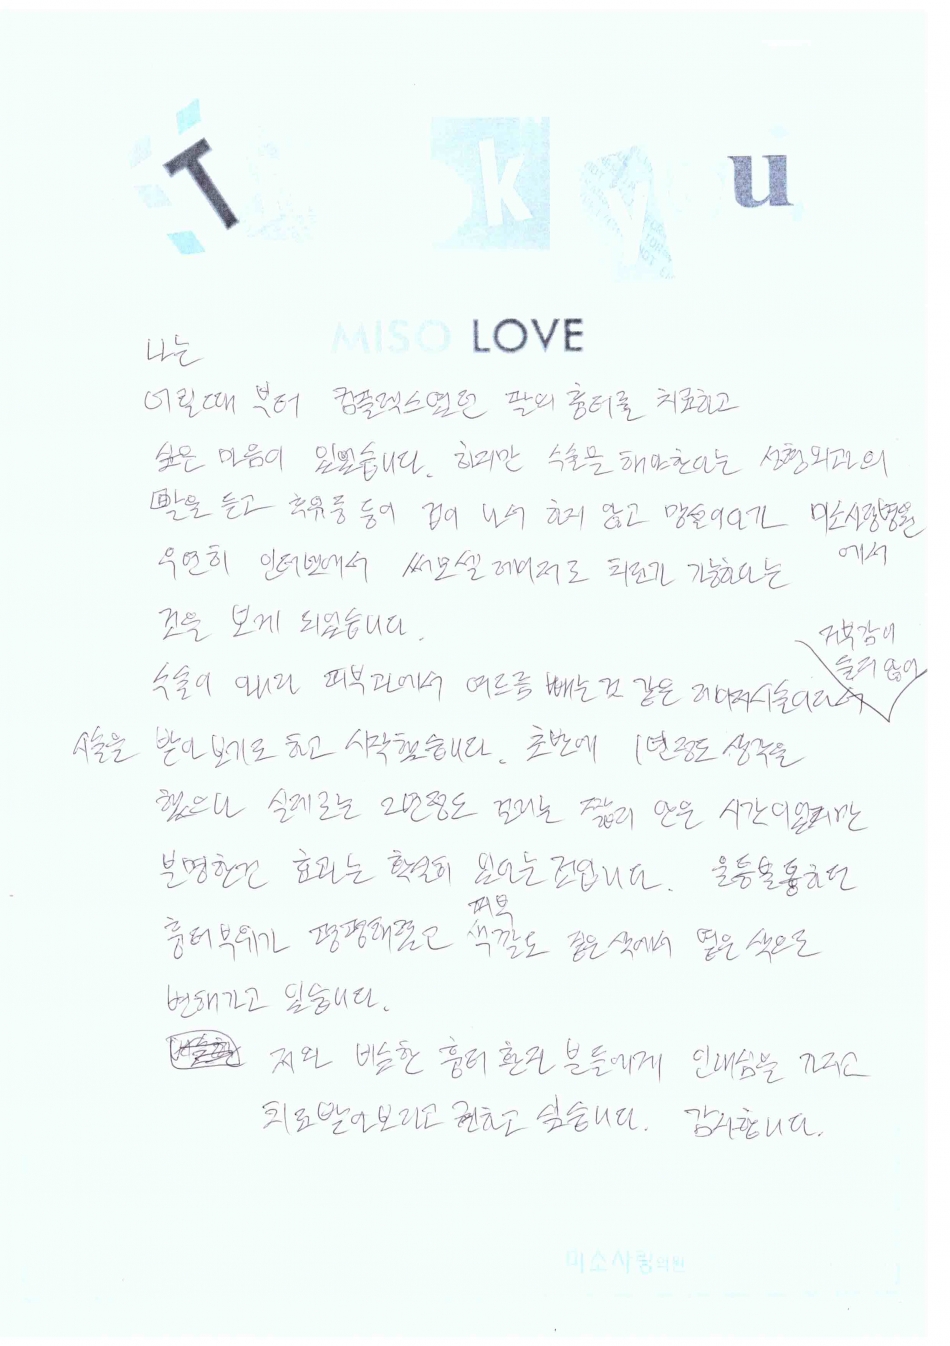 T k y u
MISO LOVE
나는
어릴때 부터 컴플렉스였던 팔의 흉터를 치료하고
싶은 마음이 있었습니다. 하지만 수술을 해야한다는 성형외과의
말을 듣고 후유증 등이 겁이 나서 하지 않고 망설이다가 미소사랑병원
에서
우연히 인터넷에서 써모셀 레이저로 치료가 가능하다는
것을 보게 되었습니다.
거부감이
들지 않아
수술이 아니라 피부과에서 여드름 빼는것 같은 레이저시술이라서
시술을 받아 보기로 하고 시작했습니다. 초반에 1년정도 생각을
했으나 실제로는 2년정도 걸리는 짧지 않은 시간이었지만
분명한건 효과는 확실히 있다는 것입니다. 울퉁불퉁하던
피부
흉터부위가 평평해졌고 색깔도 짙은 색에서 옅은 색으로
변해가고 있습니다.
저와 비슷한 흉터 환자 분들에게 인내심을 가지고
치료받아보라고 권하고 싶습니다. 감사합니다.
미소사랑의원